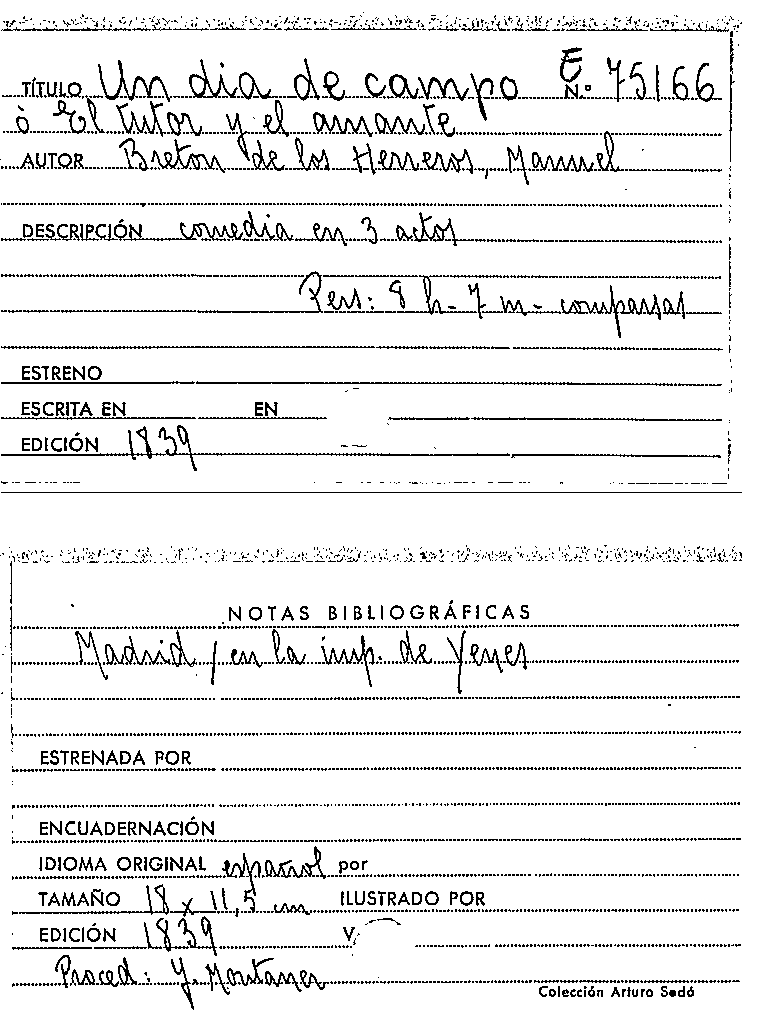 TÍTULO Un dia de campo E Nº 75166
ò El tutor y el amante
AUTOR Breton de los Herreros, Manuel
DESCRIPCIÓN comedia en 3 actos
Pers: 8 h- 7 m- comparsas
ESTRENO
ESCRITA EN EN
EDICIÓN 1839
NOTAS BIBLIOGRÁFICAS
Madrid / en la imp. de Yenes
ESTRENADA POR
ENCUADERNACIÓN
IDIOMA ORIGINAL español por
TAMAÑO 18 x 11,5 cm ILUSTRADO POR
EDICIÓN 1839 V
Proced: Y. Montaner
Colección Arturo Sedó